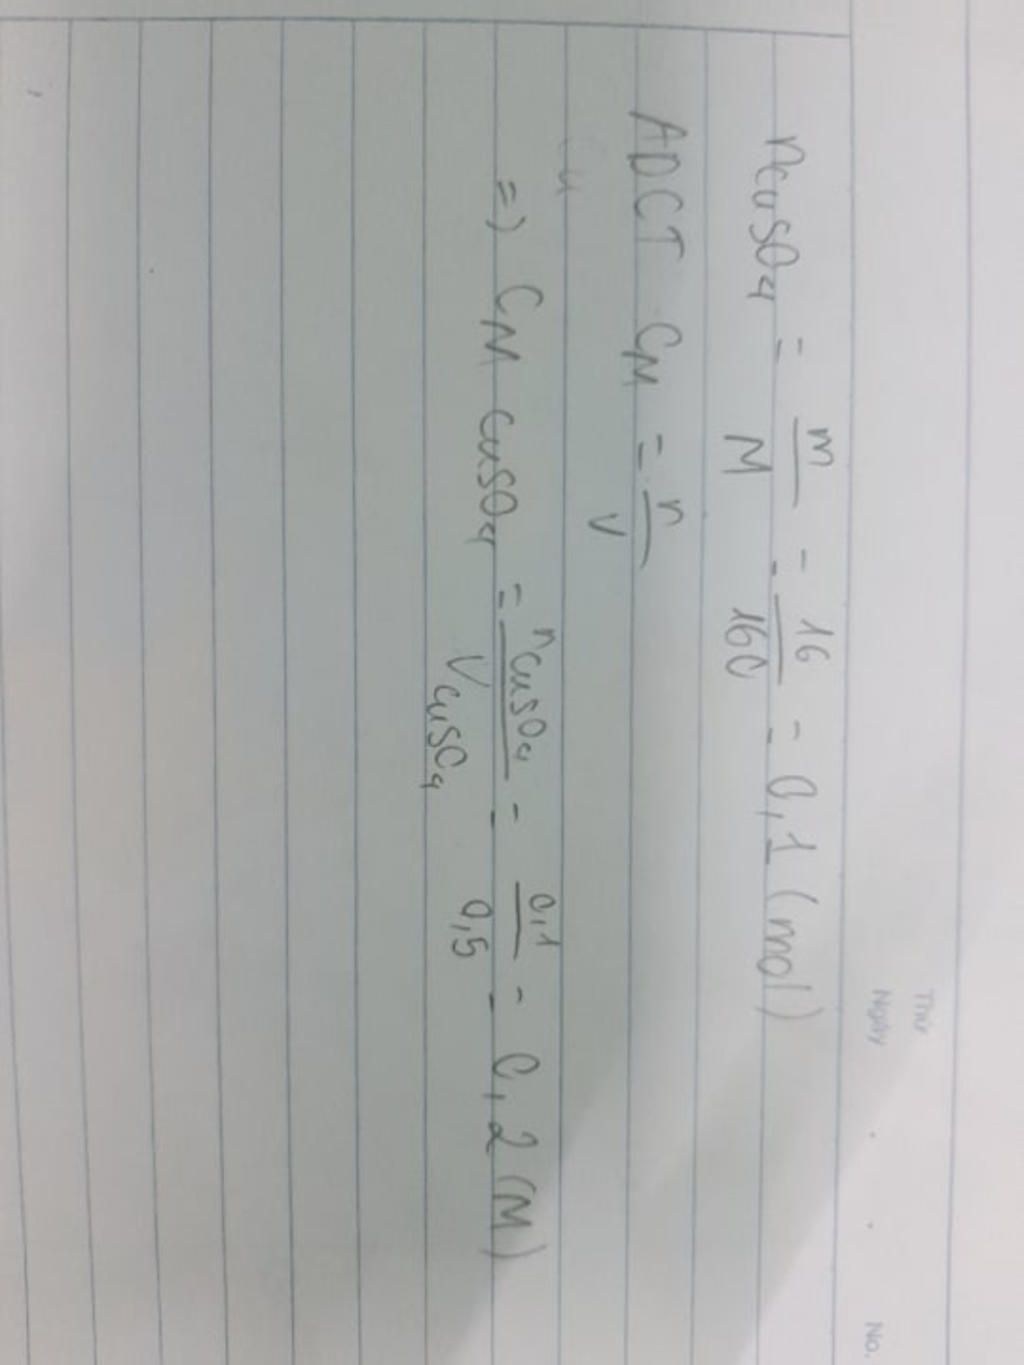 Thứ
Ngày . . No.
nCuSO4 = m/M = 16/160 = 0,1 (mol)
ADCT CM = n/V
=) CM CuSO4 = nCuSO4/VCuSO4 = 0,1/0,5 = 0,2 (M)